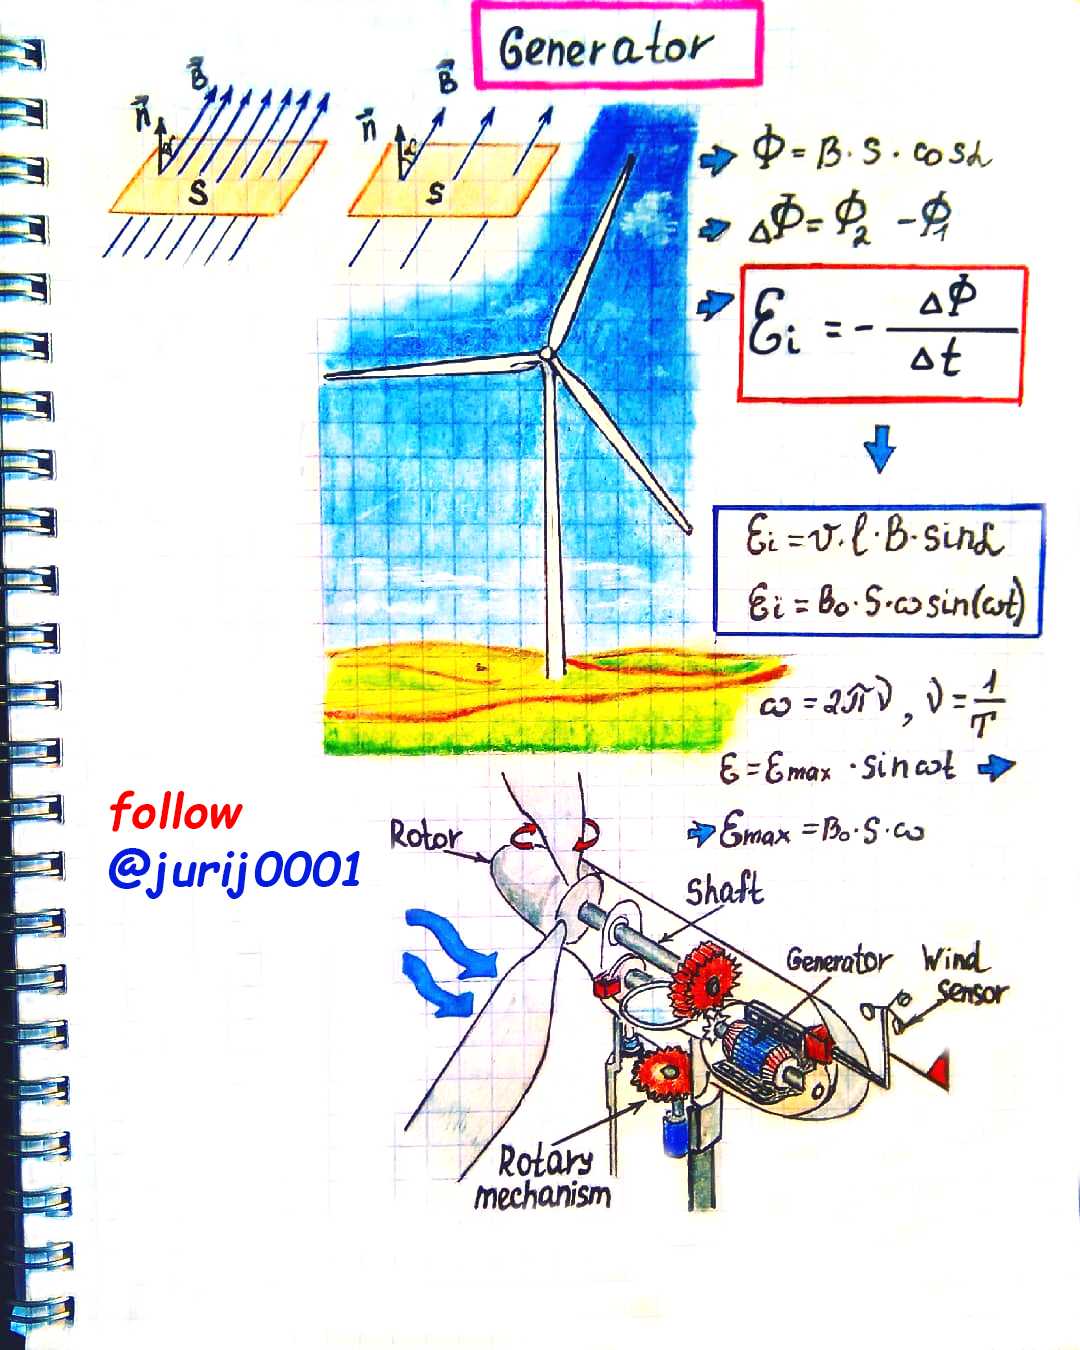 Generator
B⃗
n⃗
α
S
B⃗
n⃗
α
S
Φ = B · S · cosα
ΔΦ = Φ₂ - Φ₁
Ɛi = - ΔΦ/Δt
Ɛi = v · l · B · sinα
Ɛi = B₀ · S · ω sin(ωt)
ω = 2πν , ν = 1/T
Ɛ = Ɛmax · sin ωt
Ɛmax = B₀ · S · ω
follow
@jurij0001
Rotor
Shaft
Generator
Wind
sensor
Rotary
mechanism